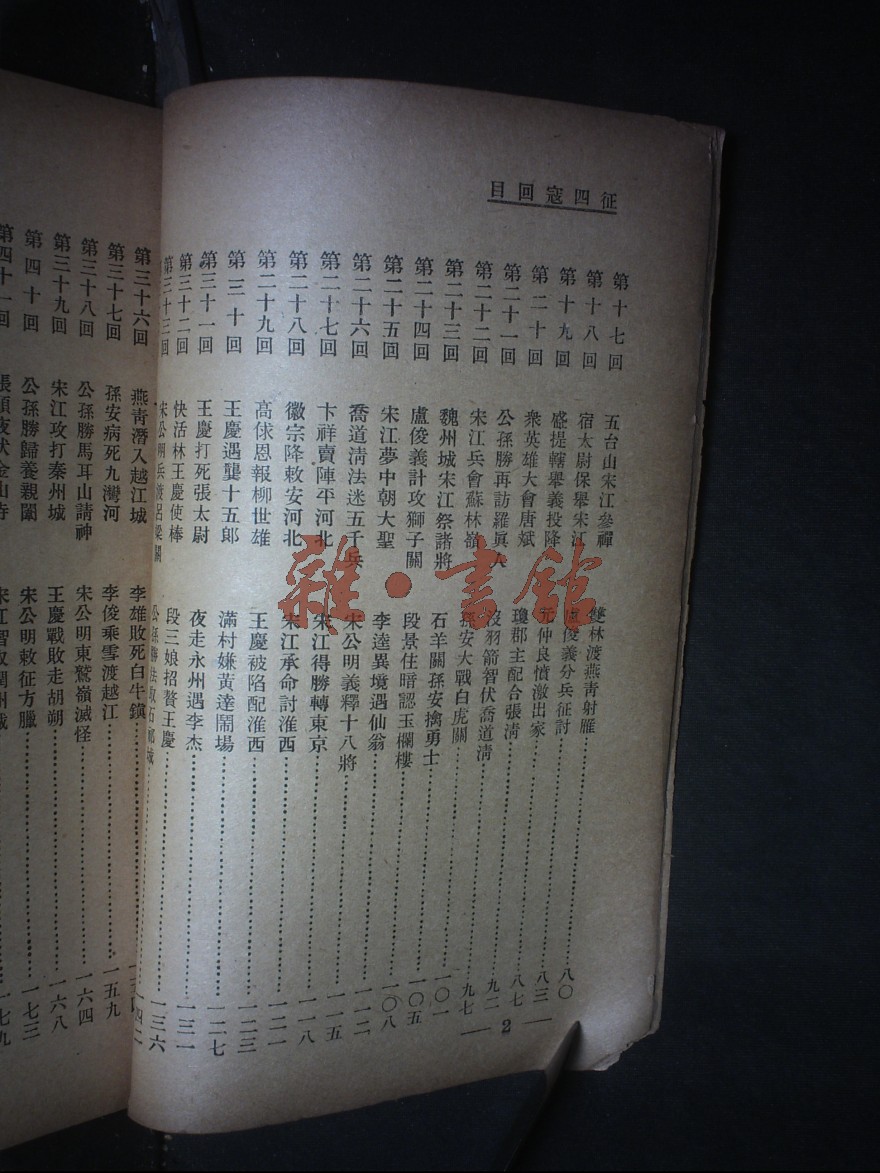 征四寇回目
第十七回 五台山宋江參禪 雙林渡燕青射雁……八〇
第十八回 宿太尉保舉宋江 盧俊義分兵征討……八三
第十九回 盛提轄舉義投降 元仲良憤激出家……八七
第二十回 衆英雄大會唐斌 瓊郡主配合張清……九二
第二十一回 公孫勝再訪羅眞人 沒羽箭智伏喬道清……九七
第二十二回 宋江兵會蘇林嶺 孫安大戰白虎關……一〇一
第二十三回 魏州城宋江祭諸將 石羊關孫安擒勇士……一〇五
第二十四回 盧俊義計攻獅子關 段景住暗認玉欄樓……一〇八
第二十五回 宋江夢中朝大聖 李逵異境遇仙翁……一一二
第二十六回 喬道清法迷五千兵 宋公明義釋十八將……一一五
第二十七回 卞祥賣陣平河北 宋江得勝轉東京……一一八
第二十八回 徽宗降敕安河北 宋江承命討淮西……一二一
第二十九回 高俅恩報柳世雄 王慶被陷配淮西……一二三
第三十回 王慶遇龔十五郎 滿村嫌黃達鬧場……一二七
第三十一回 王慶打死張太尉 夜走永州遇李杰……一三一
第三十二回 快活林王慶使棒 段三娘招贅王慶……一三六
第三十三回 宋公明兵渡呂梁關 公孫勝法取石祁城……一四二
2
第三十六回 燕青潛入越江城 李雄敗死白牛鎭……
第三十七回 孫安病死九灣河 李俊乘雪渡越江……一五九
第三十八回 公孫勝馬耳山請神 宋公明東鷲嶺滅怪……一六四
第三十九回 宋江攻打秦州城 王慶戰敗走胡朔……一六八
第四十回 公孫勝歸養親闈 宋公明敕征方臘……一七三
第四十一回 張順夜伏金山寺 宋江智取潤州城……一七九